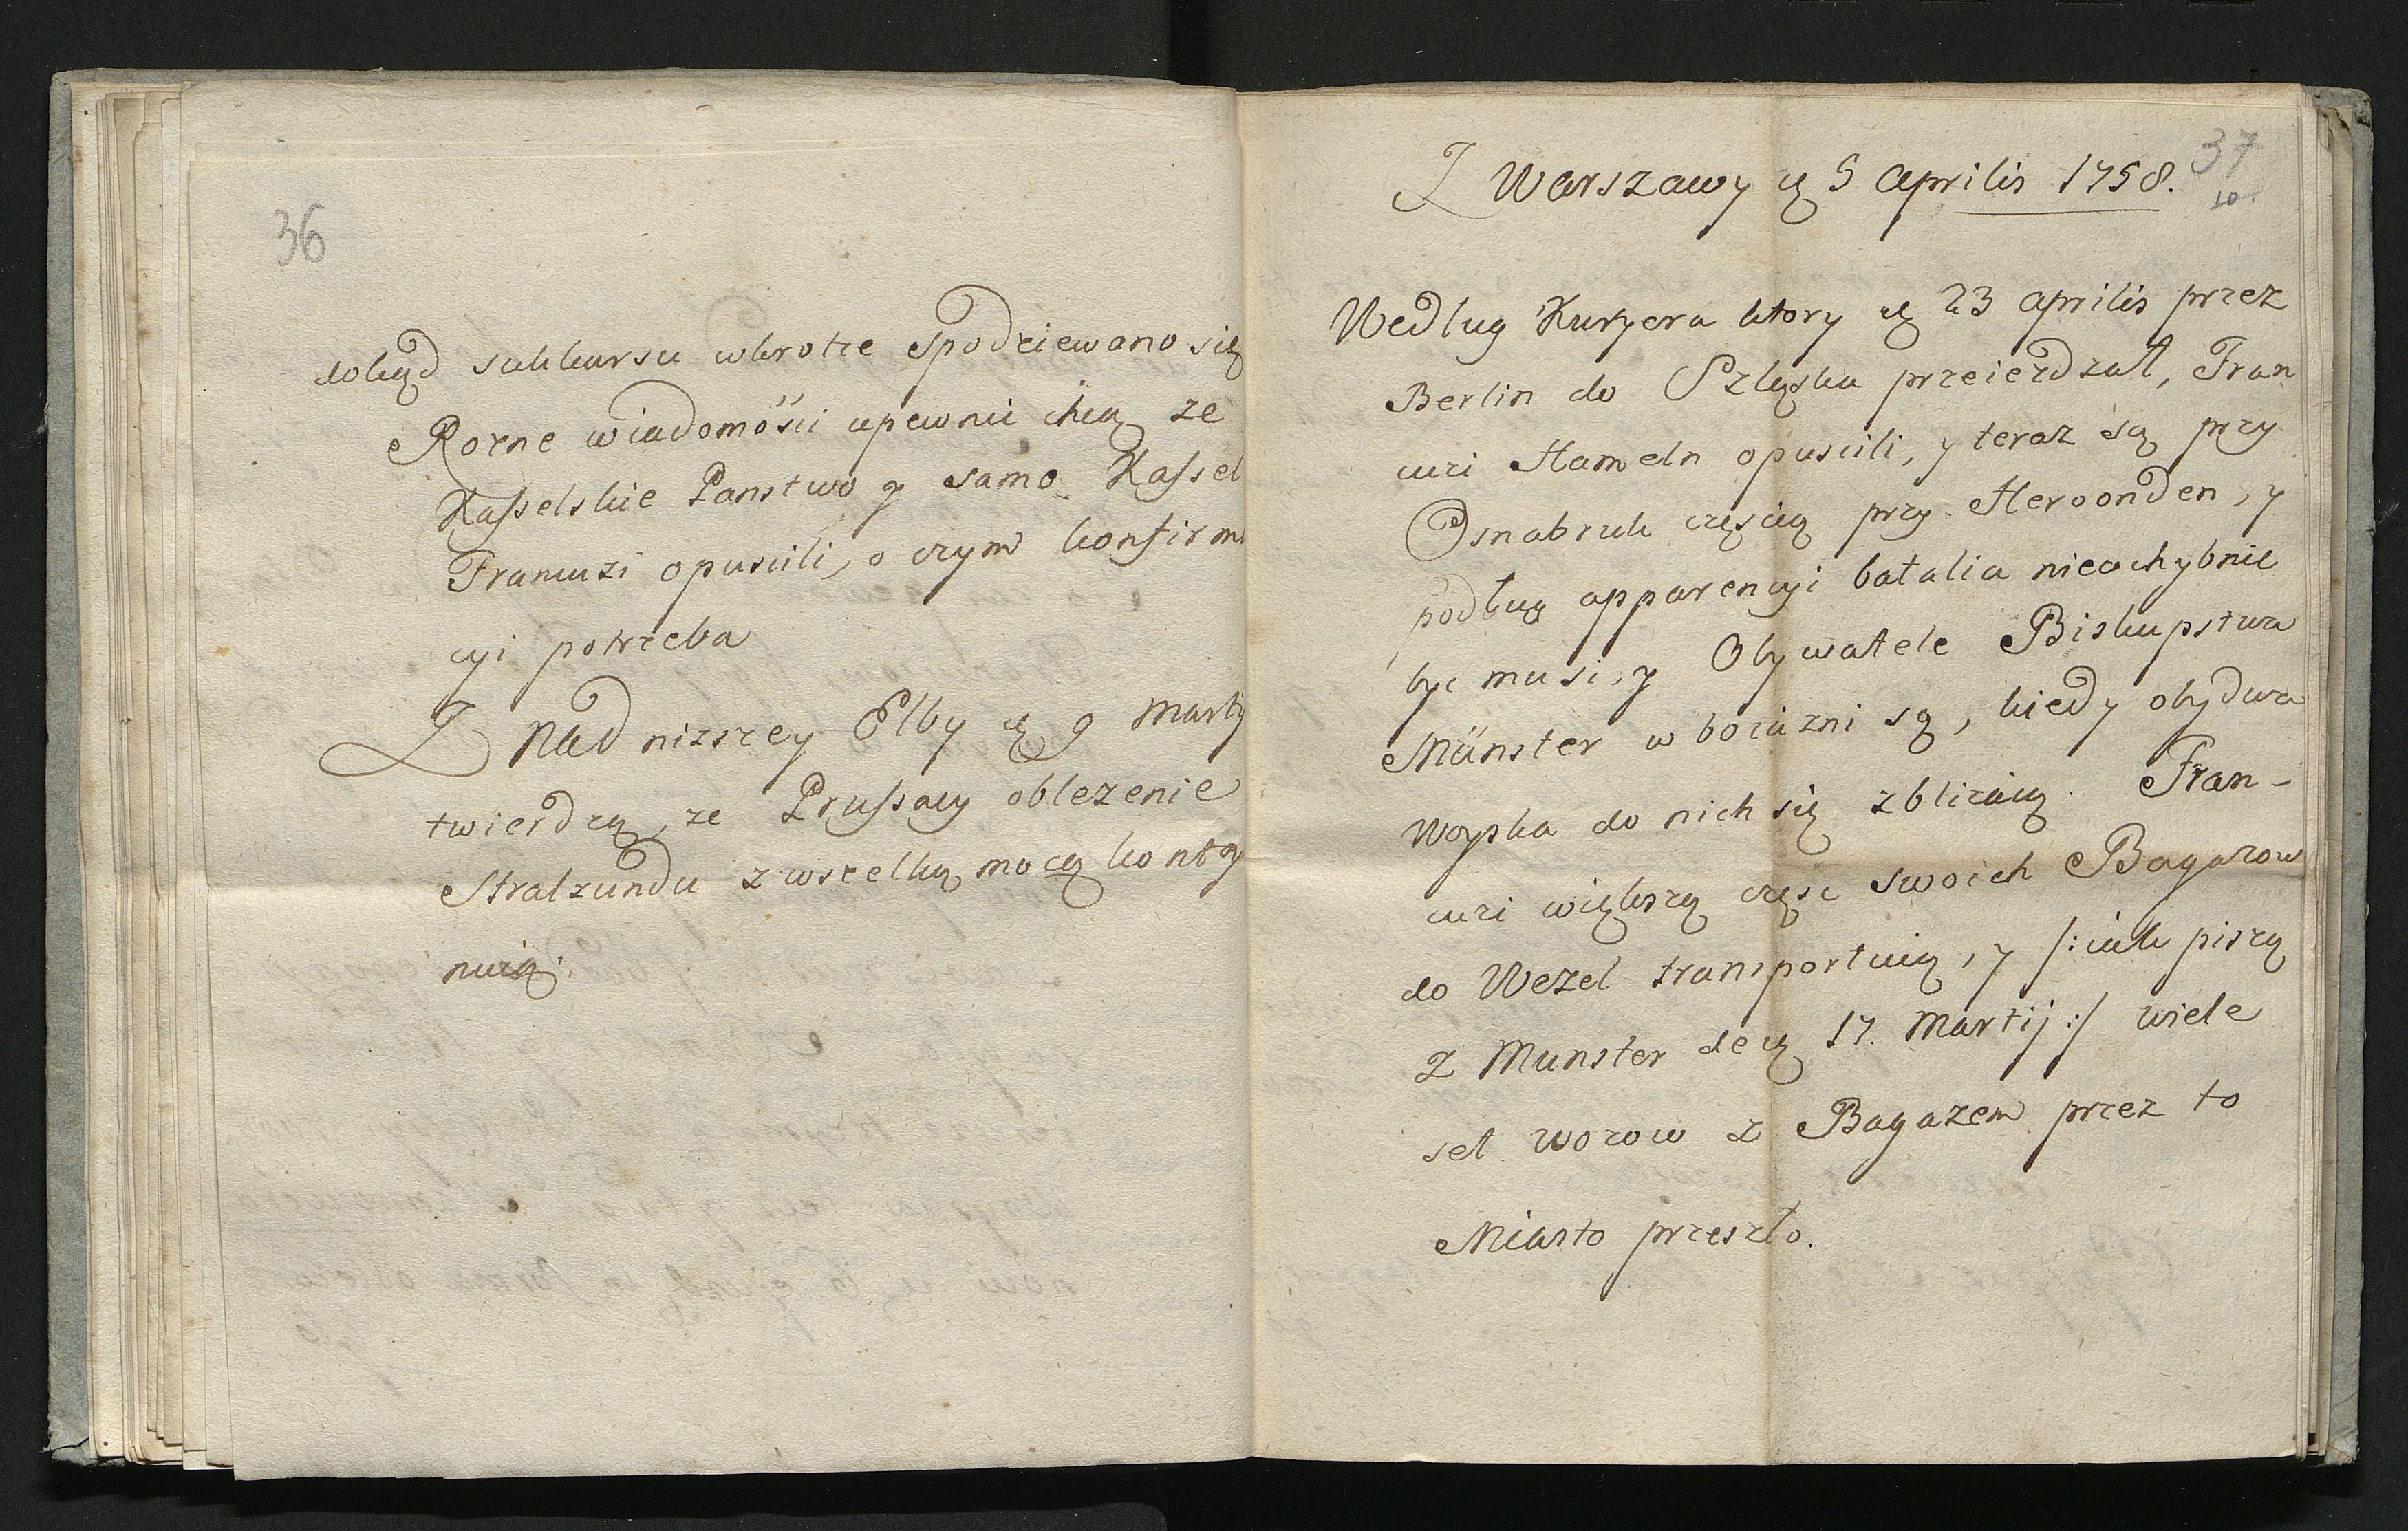 36
dokąd sukkursu wkrotce spodziewano się
Rozne wiadomości upewnić chcą ze
Kasselskie Panstwo y samo Kassel
Francuzi opuscili, o czym konfirma
cyi potrzeba
Z Nad nizszey Elby 9 Martij
twierdzą, ze Prussacy oblezenie
Stralzundu z wszelką mocą konty
nuią.
37
Z Warszawy 5 Aprilis 1758.
10.
Według Kuryera ktory 23 Aprilis przez
Berlin do Szląska przeiezdzał, Fran
cuzi Hameln opuscili, y teraz są przy
Osnabruk częscią przy Heroonden, y
podług apparencyi batalia nieochybnie
byc musi, y Obywatele Biskupstwa
Münster w boiazni są, kiedy obydwa
Woyska do nich się zbliżaią. Fran-
cuzi większą częsc swoich Bagazow
do Wezel transportuią, y /: iak piszą
z Munster de 17. Martij :/ wiele
set wozow z Bagazem przez to
Miasto przeszło.